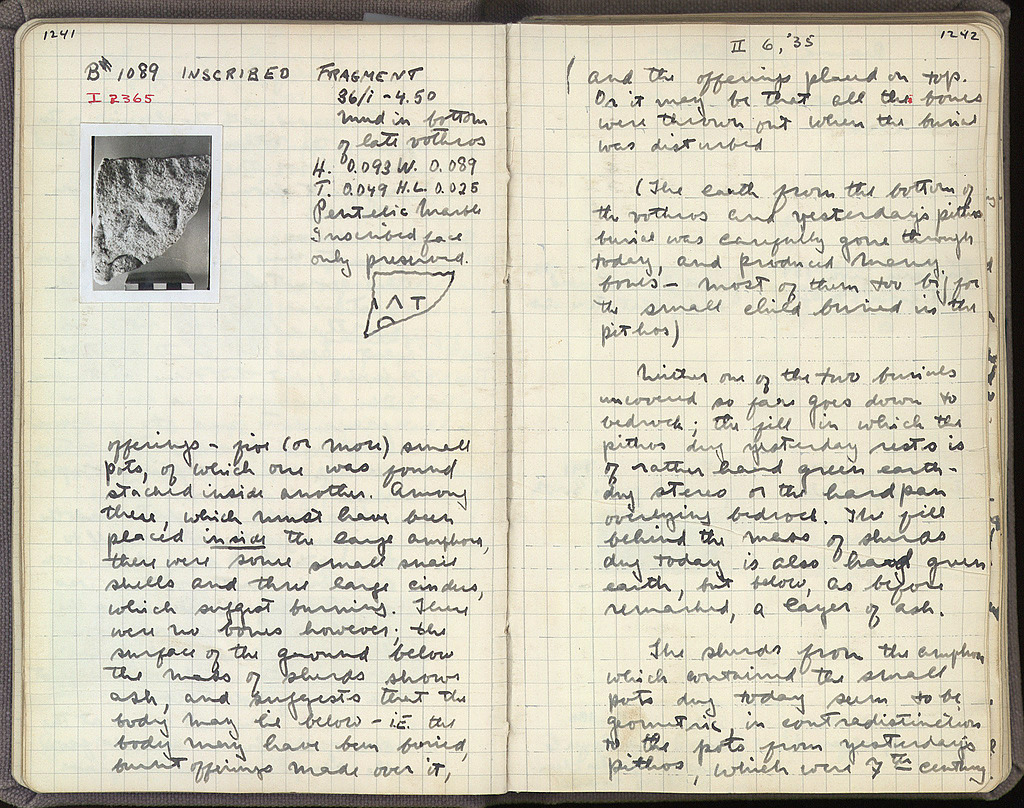 1241
B# 1089 INSCRIBED FRAGMENT
I 2365
36/i - 4.50
found in bottom
of late vothros
H. 0.093 W. 0.089
T. 0.049 H.L. 0.025
Pentelic Marble
Inscribed face
only preserved.
offerings - five (or more) small
pots, of which one was found
stacked inside another. Among
these, which must have been
placed inside the large amphora,
there were some small snail
shells and three large cinders,
which suggest burning. There
were no bones however; the
surface of the ground below
the mass of sherds shows
ash, and suggests that the
body may lie below - i.e. the
body may have been buried,
burnt offerings made over it,
1242
II 6, '35
and the offerings placed on top.
Or it may be that all the bones
were thrown out when the burial
was disturbed
(The earth from the bottom of
the vothros and yesterday's pithos
burial was carefully gone through
today, and produced many
bones - most of them too big for
the small child buried in the
pithos)
Neither one of the two burials
uncovered so far goes down to
bedrock; the fill in which the
pithos dug yesterday rests is
of rather hard green earth -
dug stereo or the hardpan
overlying bedrock. The fill
behind the mass of sherds
dug today is also hard green
earth, but below, as before
remarked, a layer of ash.
The sherds from the amphora
which contained the small
pots dug today seem to be
geometric, in contradistinction
to the pots from yesterday's
pithos, which were 7th century.